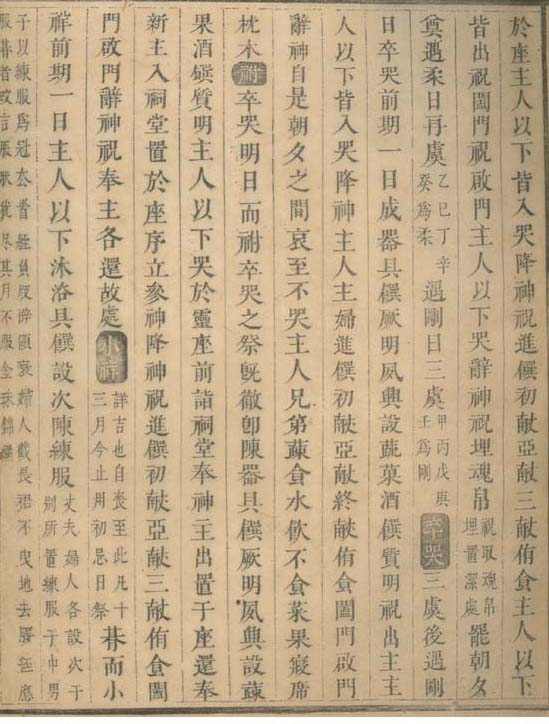 於座主人以下皆入哭降神祝進饌初献亞献三献侑食主人以下
皆出祝闔門祝啟門主人以下哭辭神祝埋魂帛祝取魂帛埋置潔處罷朝夕
奠遇柔日再虞乙巳丁辛癸爲柔遇剛日三虞甲丙戊庚壬爲剛卒哭三虞後遇剛
日卒哭前期一日成器具饌厥明夙興設蔬菓酒饌質明祝出主主
人以下皆入哭降神主人主婦進饌初献亞献終献侑食闔門啟門
辭神自是朝夕之間哀至不哭主人兄弟蔬食水飲不食菜果寢席
枕木祔卒哭明日而祔卒哭之祭旣徹卽陳器具饌厥明夙興設蔬
果酒饌質明主人以下哭於靈座前詣祠堂奉神主出置于座還奉
新主入祠堂置於座序立參神降神祝進饌初献亞献三献侑食闔
門啟門辭神祝奉主各還故處小祥祥吉也自喪至此凡十三月今止用初忌日祭朞而小
祥前期一日主人以下沐浴具饌設次陳練服丈夫婦人各設次于別所置練服于中男
子以練服爲冠去首絰負版辟領衰婦人截長裙不曳地去腰絰應
服朞者改吉服然猶尽其月不服金珠錦繡